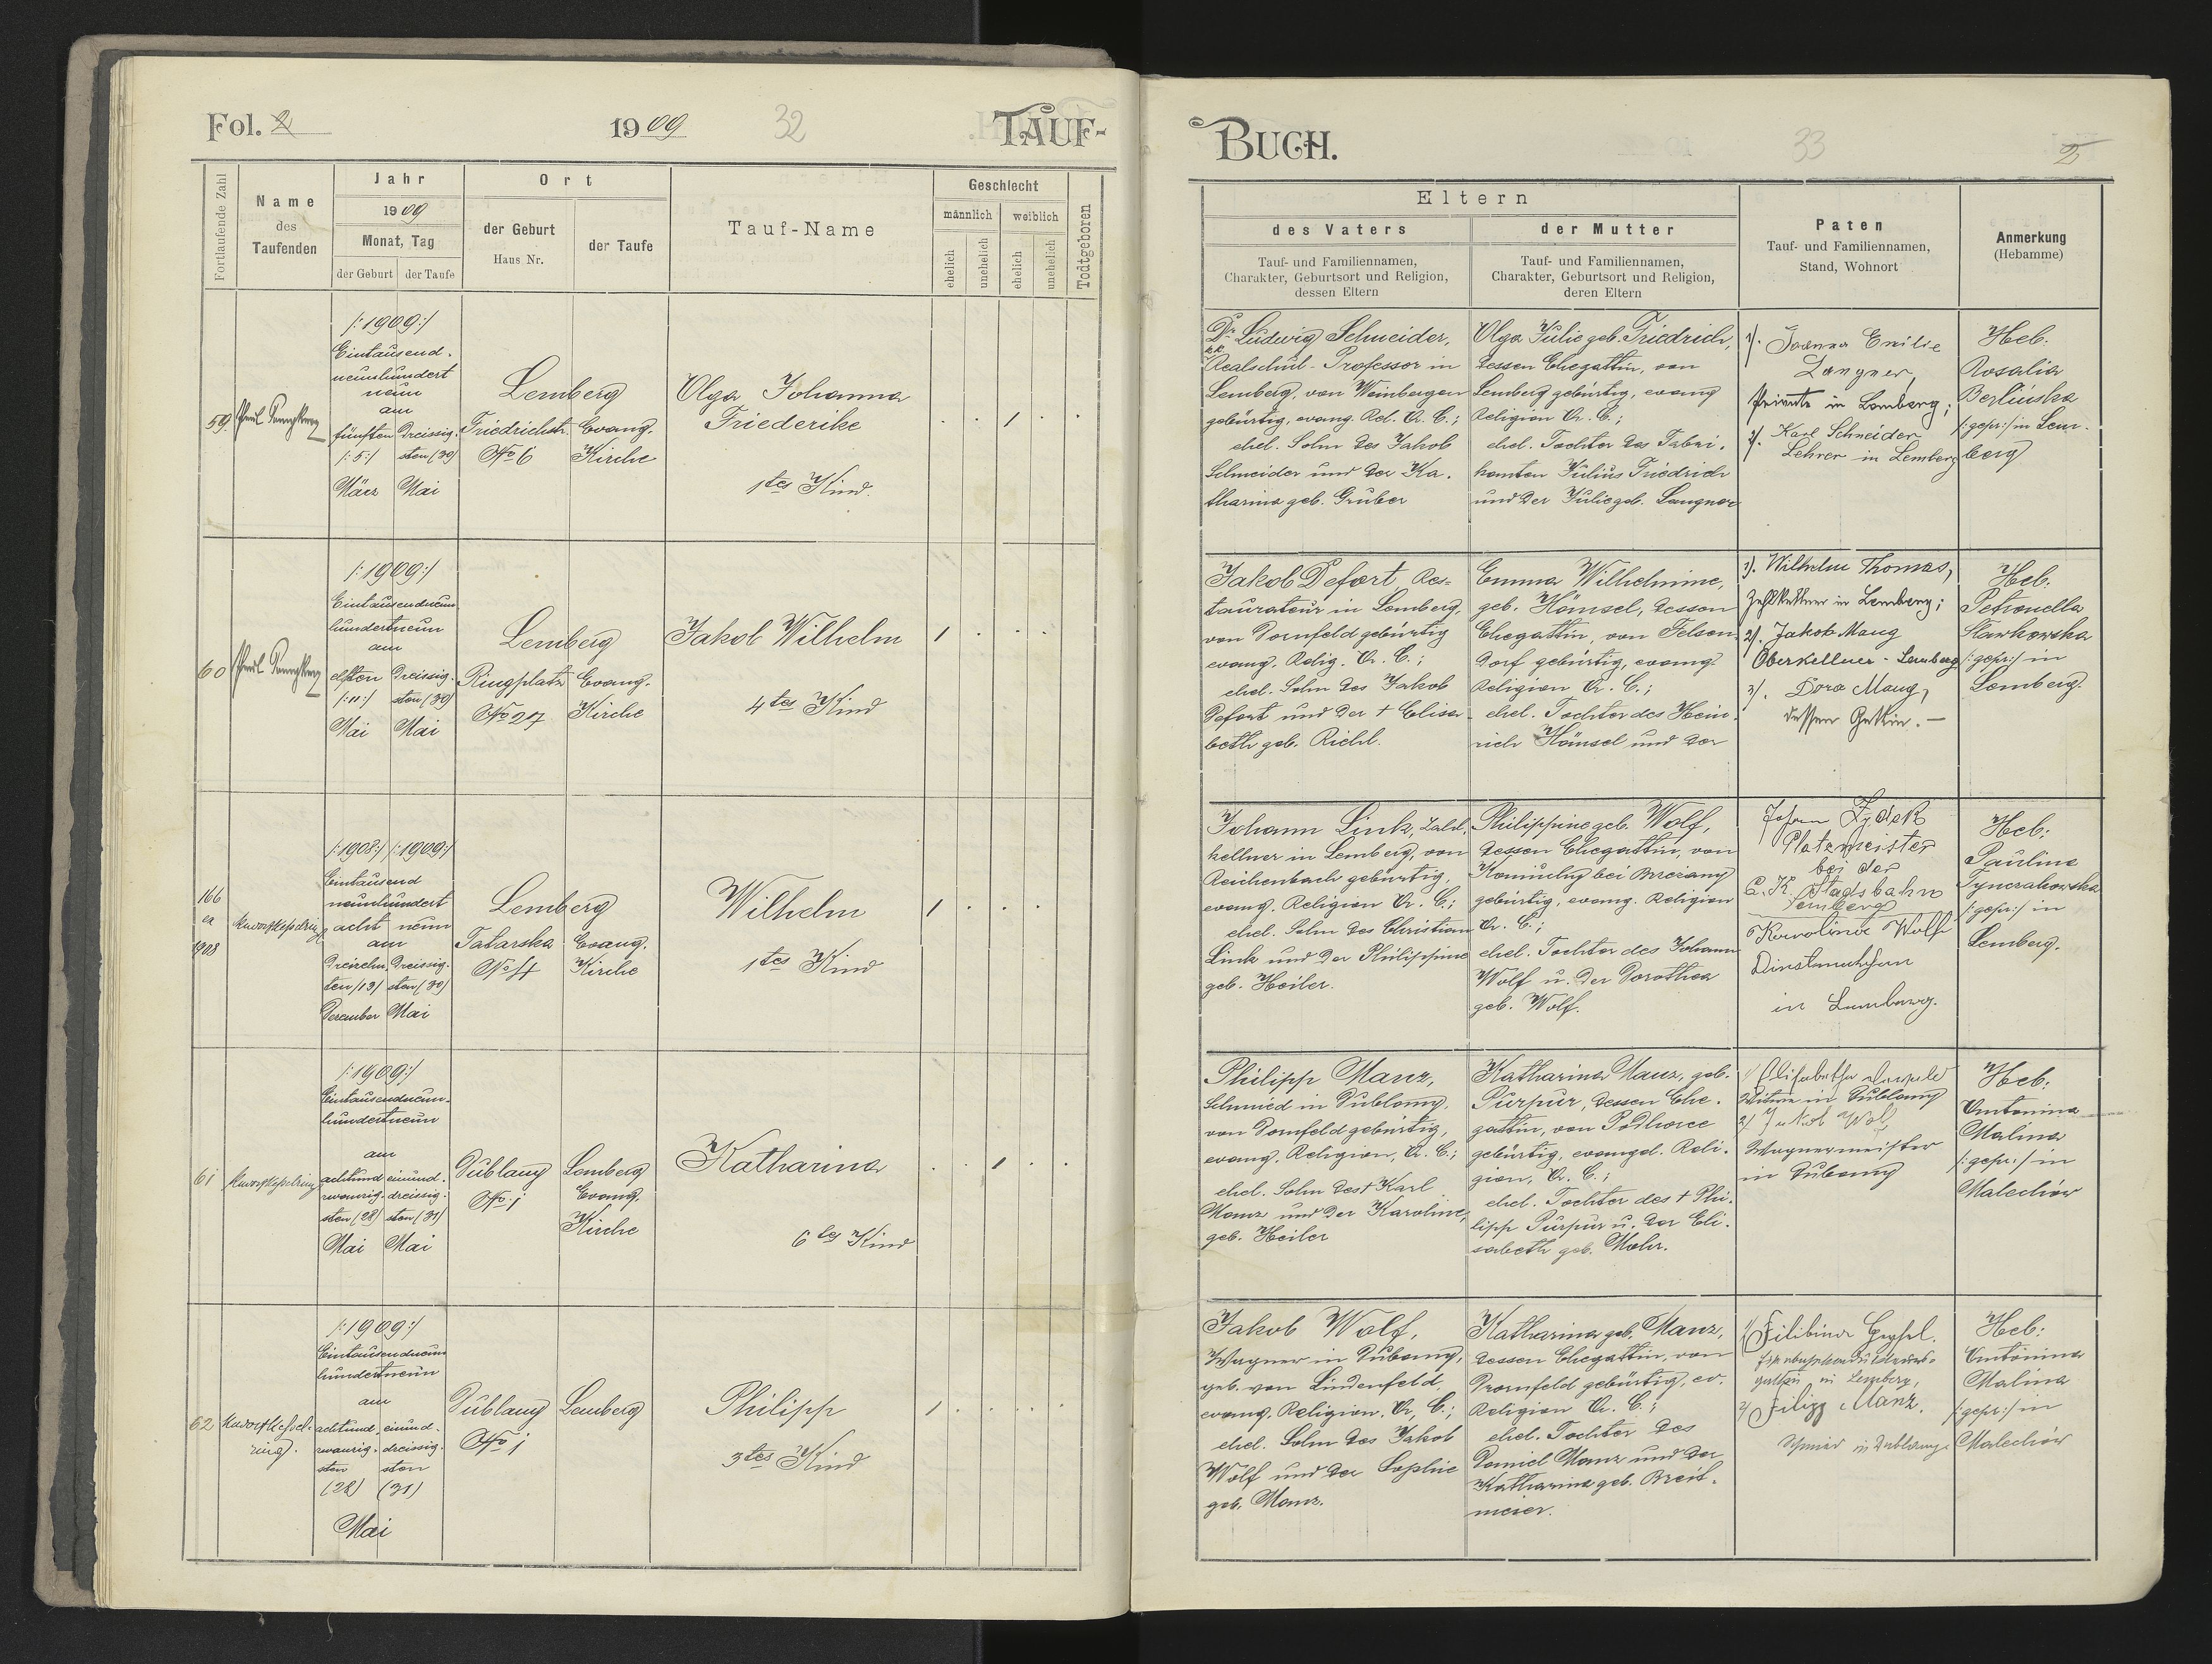 Fol. 2
1909
32
TAUF-
Fortlaufende Zahl
Name
des
Taufenden
Jahr
1909
Monat, Tag
der Geburt
der Taufe
Ort
der Geburt
Haus Nr.
der Taufe
Tauf-Name
Geschlecht
männlich
weiblich
ehelich
unehelich
ehelich
unehelich
Todtgeboren
59
/:1909:/
Eintausend-
neunhundert
neun
am
fünften Dreissig-
/:5:/ sten (30)
März Mai
Lemberg
Friedrichstr. Evang.
No 6 Kirche
Olga Johanna
Friederike
1tes Kind.
60
/:1909:/
Eintausendneun-
hundertneun
am
elften Dreissig-
/:11:/ sten (30)
Mai Mai
Lemberg
Ringplatz Evang.
No 27 Kirche
Jakob Wilhelm
4tes Kind
166
ex
1908
/:1908:/ /:1909:/
Eintausend
neunhundert
acht neun
am
Dreizehn Dreissig-
ten /13/ sten (30)
Dezember Mai
Lemberg
Tatarska Evang.
No 4 Kirche
Wilhelm
1tes Kind
61
/:1909:/
Eintausendneun-
hundertneun
am
achtund einund-
zwanzig- dreissig-
sten (28) sten (31)
Mai Mai
Dublany Lemberg
No 1 Evang.
Kirche
Katharina
6tes Kind
62
/:1909:/
Eintausendneun
hundertneun
am
achtund einund-
zwanzig- dreissig-
sten sten
(28) (31)
Mai
Dublany Lemberg
No 1
Philipp
3tes Kind
BUCH.
33
2
Eltern
des Vaters
Tauf- und Familiennamen,
Charakter, Geburtsort und Religion,
dessen Eltern
der Mutter
Tauf- und Familiennamen,
Charakter, Geburtsort und Religion,
deren Eltern
Paten
Tauf- und Familiennamen,
Stand, Wohnort
Anmerkung
(Hebamme)
Dr. Ludwig Schneider,
k.k. Realschul-Professor in
Lemberg, von Weinbergen
gebürtig, evang. Rel. A. C.;
ehel. Sohn des Jakob
Schneider und der Ka-
tharina geb. Gruber
Olga Julie geb. Friedrich,
dessen Ehegattin, von
Lemberg gebürtig, evang
Religion A. C.;
ehel. Tochter des Fabri-
kanten Julius Friedrich
und der Julie geb. Langner
1). Joanna Emilie
Langner,
Private in Lemberg;
2). Karl Schneider
Lehrer in Lemberg
Heb.
Rosalia
Berlinska
/:gepr:/ in Lem-
berg
Jakob Defort, Res-
taurateur in Lemberg,
von Dornfeld gebürtig
evang. Relig. A. C.;
ehel. Sohn des Jakob
Defort und der † Elisa-
beth geb. Richl.
Emma Wilhelmine,
geb. Hänsel, dessen
Ehegattin, von Felsen-
dorf gebürtig, evang.
Religion A. C.;
ehel. Tochter des Hein-
rich Hänsel und der
1). Wilhelm Thomas,
Zahlkellner in Lemberg;
2). Jakob Maug
Oberkellner - Lemberg
3). Dora Maug,
dessen Gattin. —
Heb:
Petronella
Slawkowska
/:gepr:/ in
Lemberg.
Johann Link, Zahl-
kellner in Lemberg, von
Reichenbach gebürtig,
evang. Religion A. C.;
ehel. Sohn des Christian
Link und der Philippine
geb. Heiler.
Philippine geb. Wolf,
dessen Ehegattin, von
bei Brzezany
gebürtig, evang. Religion
A. C.;
ehel. Tochter des Johann
Wolf u. der Dorothea
geb. Wolf.
Johann Zydek
Platzmeister
bei der
C. K. Stadsbahn
Lemberg
Karolinoe Wolf
in Lemberg.
Heb:
Pauline
Tynerahowska
/:gepr:/ in
Lemberg.
Philipp Manz,
Schmied in Dublany,
von Dornfeld gebürtig,
evang. Religion, A. C.;
ehel. Sohn des † Karl
Manz und der Karoline,
geb. Heiler
Katharina Manz, geb.
Purpur, dessen Ehe-
gattin, von Podhorce
gebürtig, evangel. Reli-
gion, A. C.;
ehel. Tochter des † Phi-
lipp Purpur u. der Eli-
sabeth geb. Mohr.
Elisabetha
Witwe in Dublany
2) Jakob Wolf
Wagnermeister
in Dublany
Heb:
Antonina
Malina
/:gepr:/ in
Malechów
Jakob Wolf,
Wagner in Dublany,
geb. von Lindenfeld,
evang. Religion, A. C.;
ehel. Sohn des Jakob
Wolf und der Sophie
geb. Manz.
Katharina geb. Manz,
dessen Ehegattin, von
Dornfeld gebürtig, ev.
Religion A. C.;
ehel. Tochter des
Daniel Manz und der
Katharina geb. Breit-
meier.
1) Filibina
gattin in Lemberg,
2) Filipp Manz.
Schmied in Dublany
Heb:
Antonina
Malina
/:gepr:/ in
Malechów